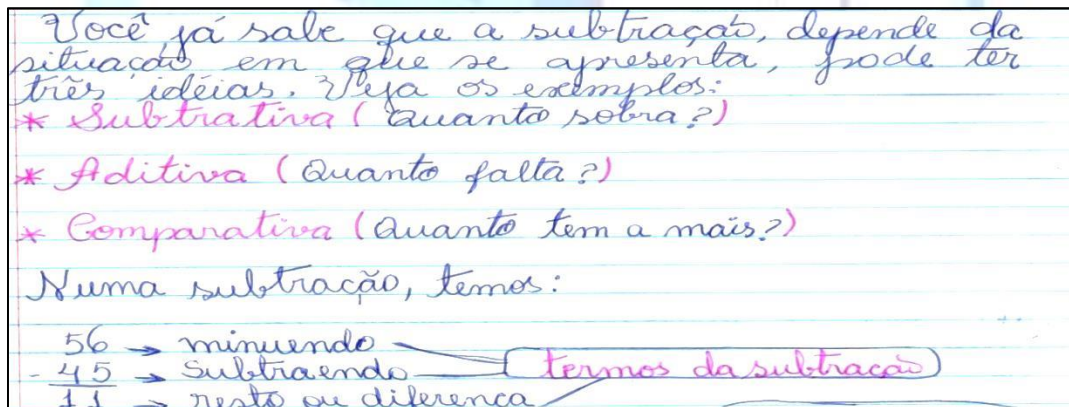 Você já sabe que a subtração, depende da
situação em que se apresenta, pode ter
três idéias. Veja os exemplos:
* Subtrativa (Quanto sobra?)
* Aditiva (Quanto falta?)
* Comparativa (Quanto tem a mais?)
Numa subtração, temos:
56 → minuendo
- 45 → Subtraendo termos da subtração
11 → resto ou diferença